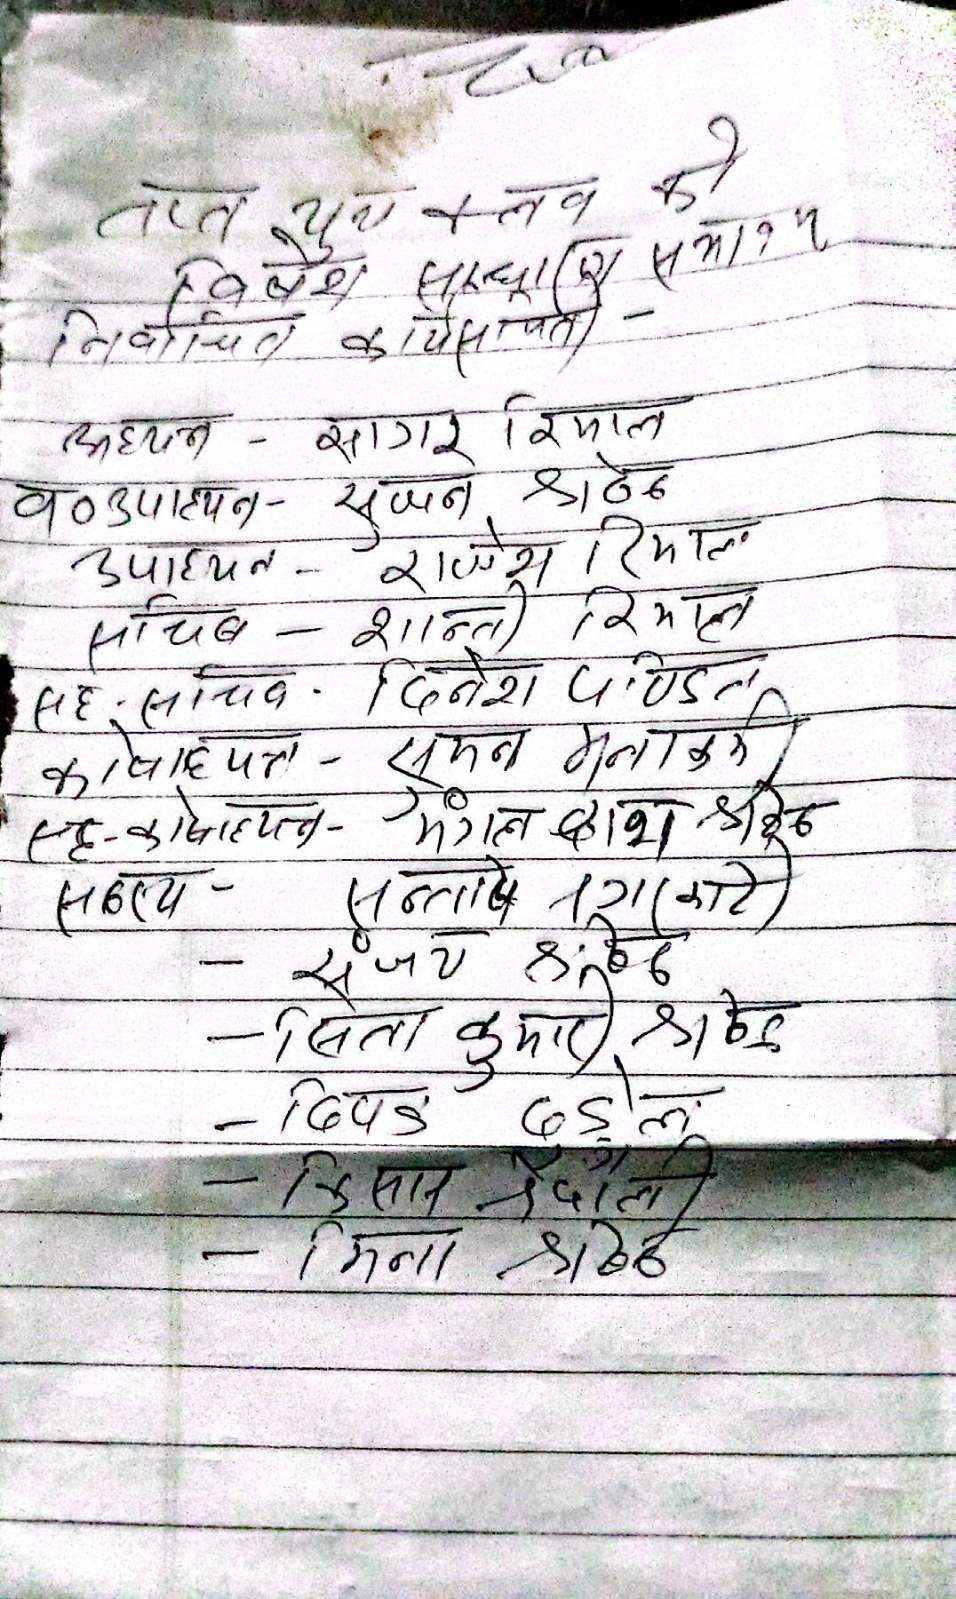 तप्त युथ क्लव को
विषेश साधारण सभाबाट
निर्वाचित कार्यसमिती -
अध्यक्ष - सागर रिमाल
व०उपाध्यक्ष - सुजन श्रेष्ठ
उपाध्यक्ष - राजेश रिमाल
सचिव - शान्ती रिमाल
सह-सचिव - दिनेश पण्डित
कोषाध्यक्ष - सुमन मलाकर्मी
सह-कोषाध्यक्ष - मंगल श्रेष्ठ
सदस्य - सन्तोष नगरकोटी
- संजय श्रेष्ठ
- सिता कुमारी श्रेष्ठ
- दिपक दङ्गोल
- किसान
- मिना श्रेष्ठ